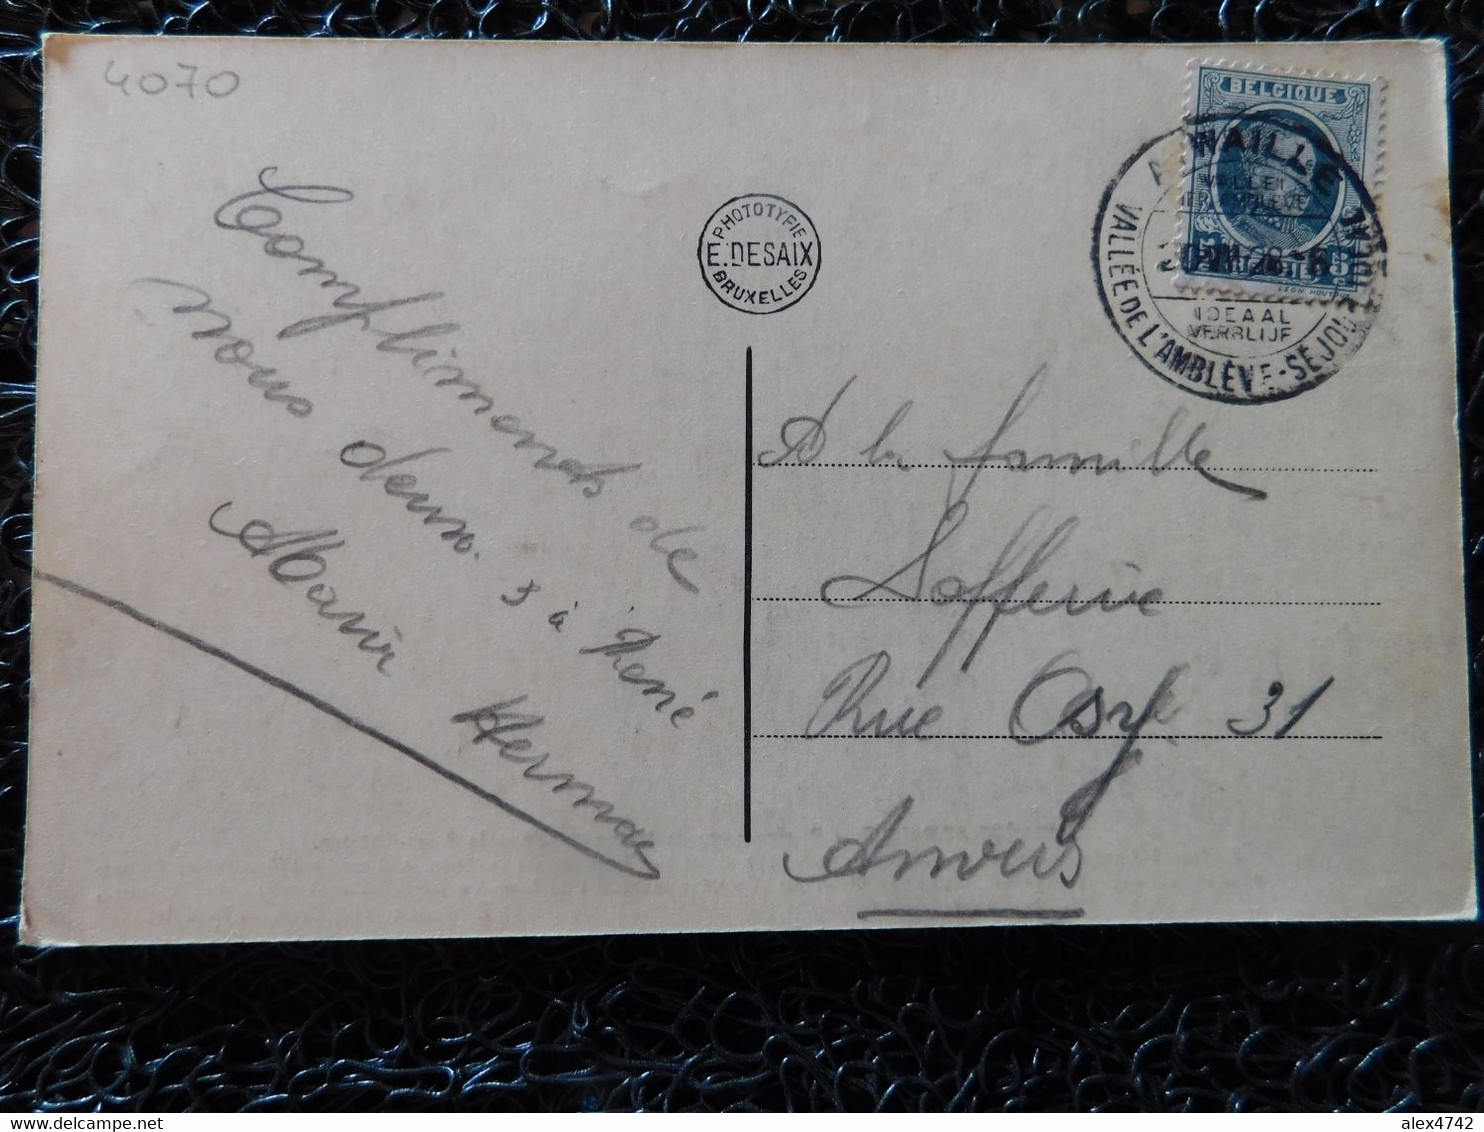 4070
Compliments de
nous deux. à René
Marie Herman
PHOTOTYPIE
E. DESAIX
BRUXELLES
BELGIQUE
AYWAILLE
VALLÉE DE L'AMBLÈVE - SÉJOUR IDÉAL
IDEAAL
VERBLIJF
A la famille
Rue Osy 31
Anvers
alex4742